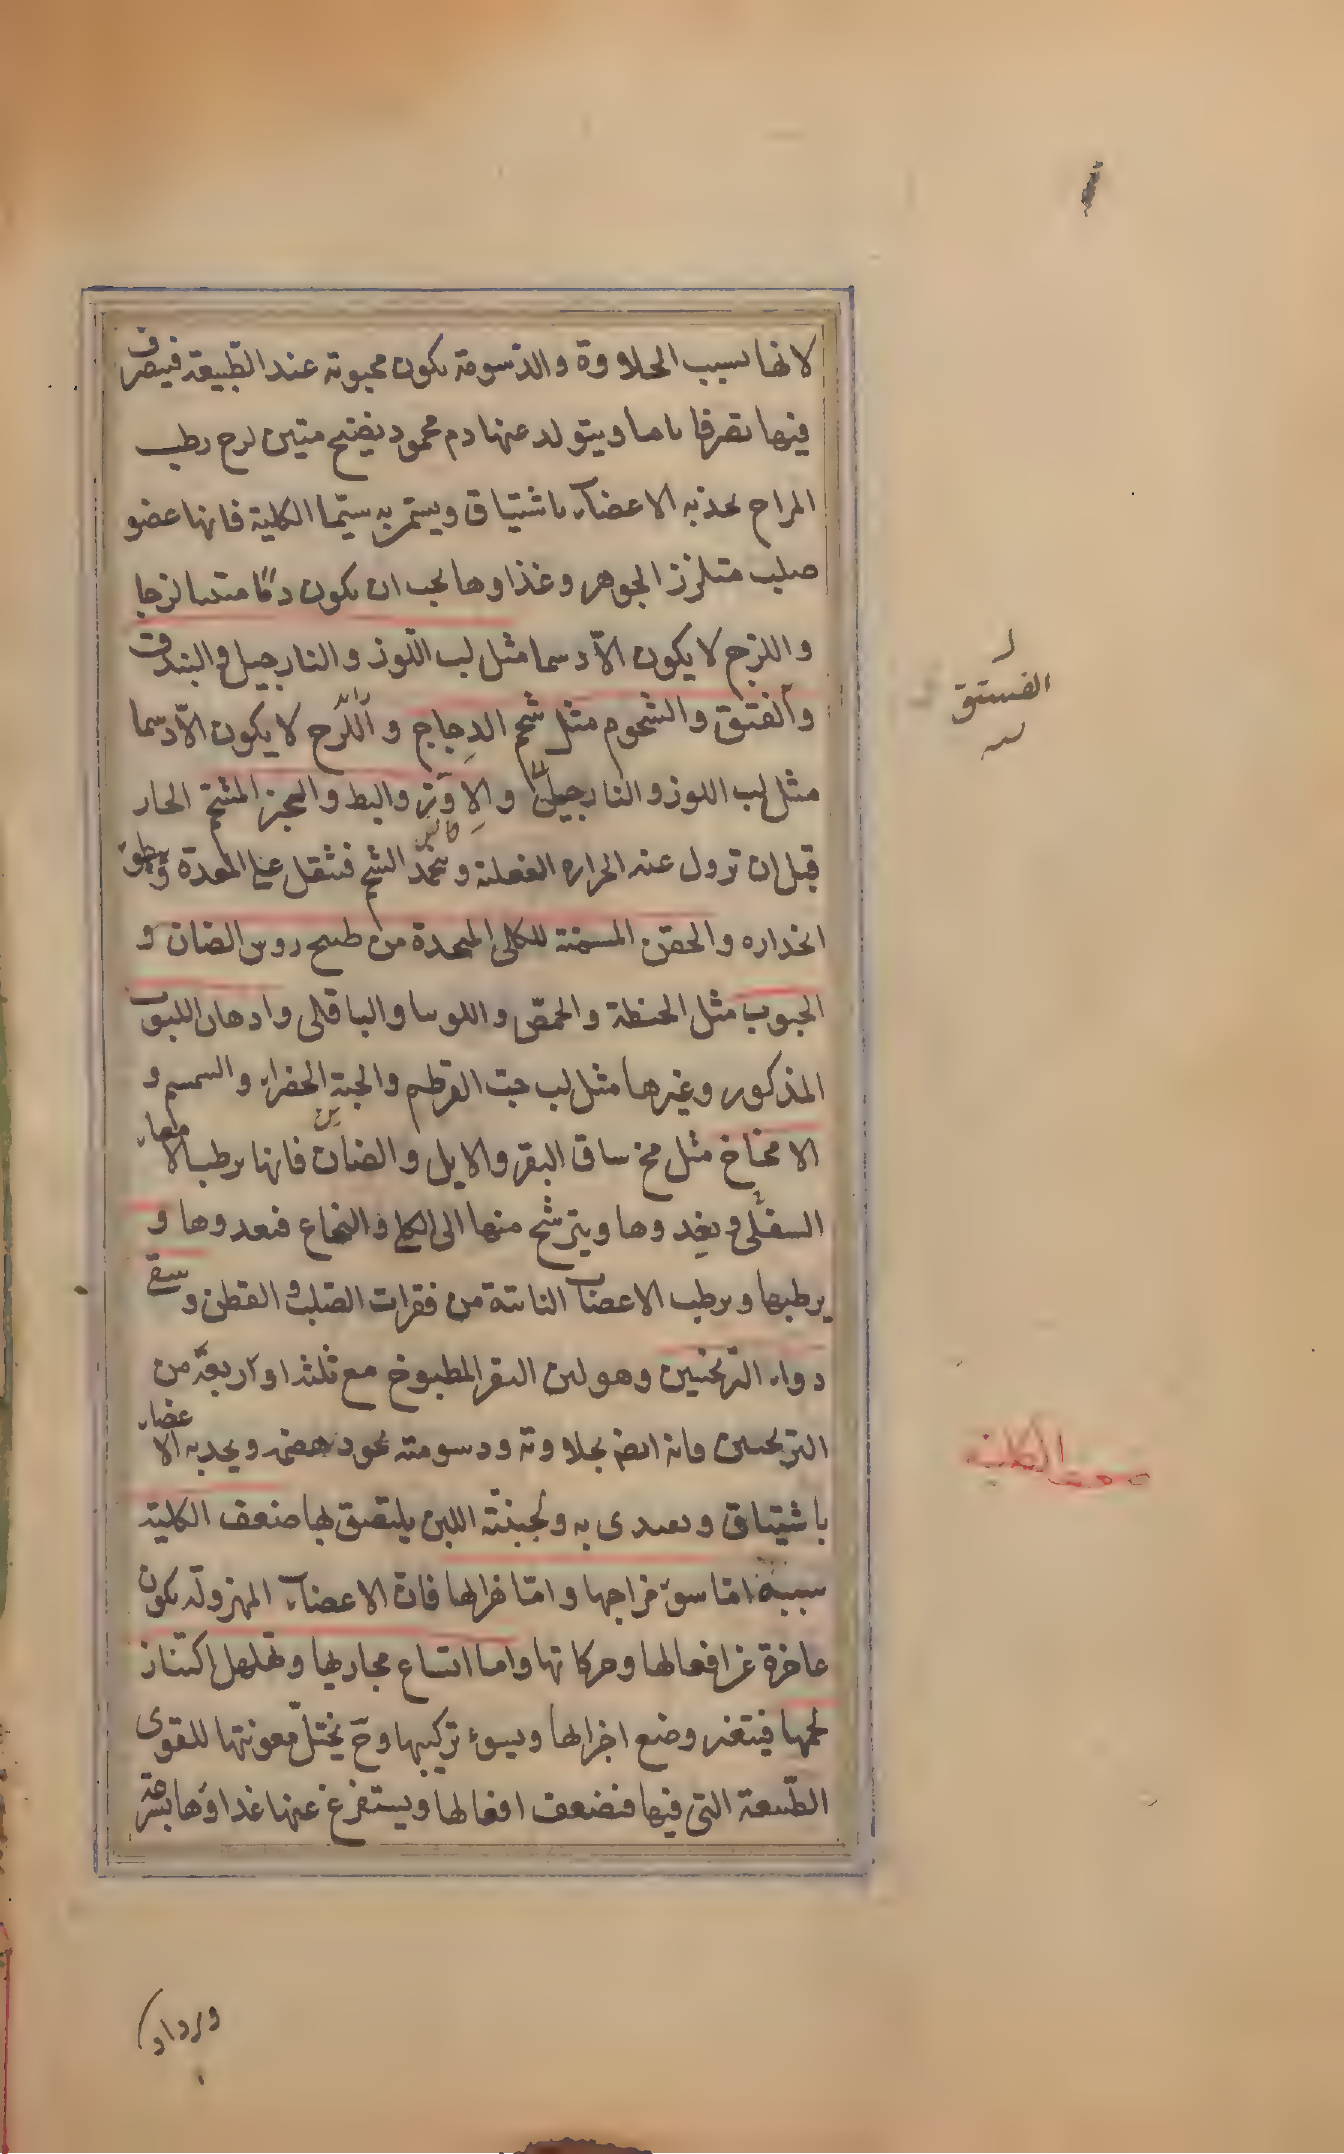 لانها بسبب الحلاوة والدسومة يكون محبوبة عند الطبيعة فيتصرف
فيها تصرفا تاما ويتولد عنها دم محمود نضيج متين لزج رطب
المزاج يجذبه الاعضاء باشتياق ويستمر به سيّما الكلية فانها عضو
صلب متلزز الجوهر وغذاوها يجب ان يكون دمًا متينا لزجا
واللزج لا يكون الّا دسما مثل لب اللّوز والنارجيل والبندق
والفتق والشحوم مثل شحم الدجاج و اللزج لا يكون الّا دسما
مثل لب اللوز والنارجيل والاوَز والبط والخبز المشحم الحار
قبل ان تزول عنه الحرارة الفعلية و يجمد الشحم فثقل على المعدة
انحداره والحقن المسمنة للكلى المتخذة من طبيخ روس الضان و
الحبوب مثل الحنطة والحمّص واللوبيا والباقلى وادهان اللبوب
المذكور وغيرها مثل لب حبّ القرطم والحبة الخضراء والسمسم و
الامخاخ مثل مخ ساق البقر والابل والضان فانها يرطب الامعاء
السفلى ويغذوها ويترشح منها الى الكلى والنخاع فتغذوها و
يرطبها ويرطب الاعصاب النابتة من فقرات الصّلب والقطن و
دواء الترنجبين وهو لبن البقر المطبوخ مع ثلثه او اربعة من
الترنجبين فانه ايضا بحلاوته ودسومته يجود هضمه ويجذبه الاعضاء
باشتياق و يغتذى به ولجبنيّة اللبن يلتصق بها ضعف الكلية
سببه امّا سوء مزاجها وامّا هزالها فان الاعضاء المهزولة يكون
عاجزة عن افعالها وحركاتها واما اتساع مجاريها وتهلهل اكتناز
لحمها فيتغير وضع اجزائها ويسوء تركيبها وح يختلّ معونتها للقوى
الطبيعة التى فيها فيضعف افعالها ويستفرغ عنها غذاوها بسرعة
الفستق
ضعف الكلية